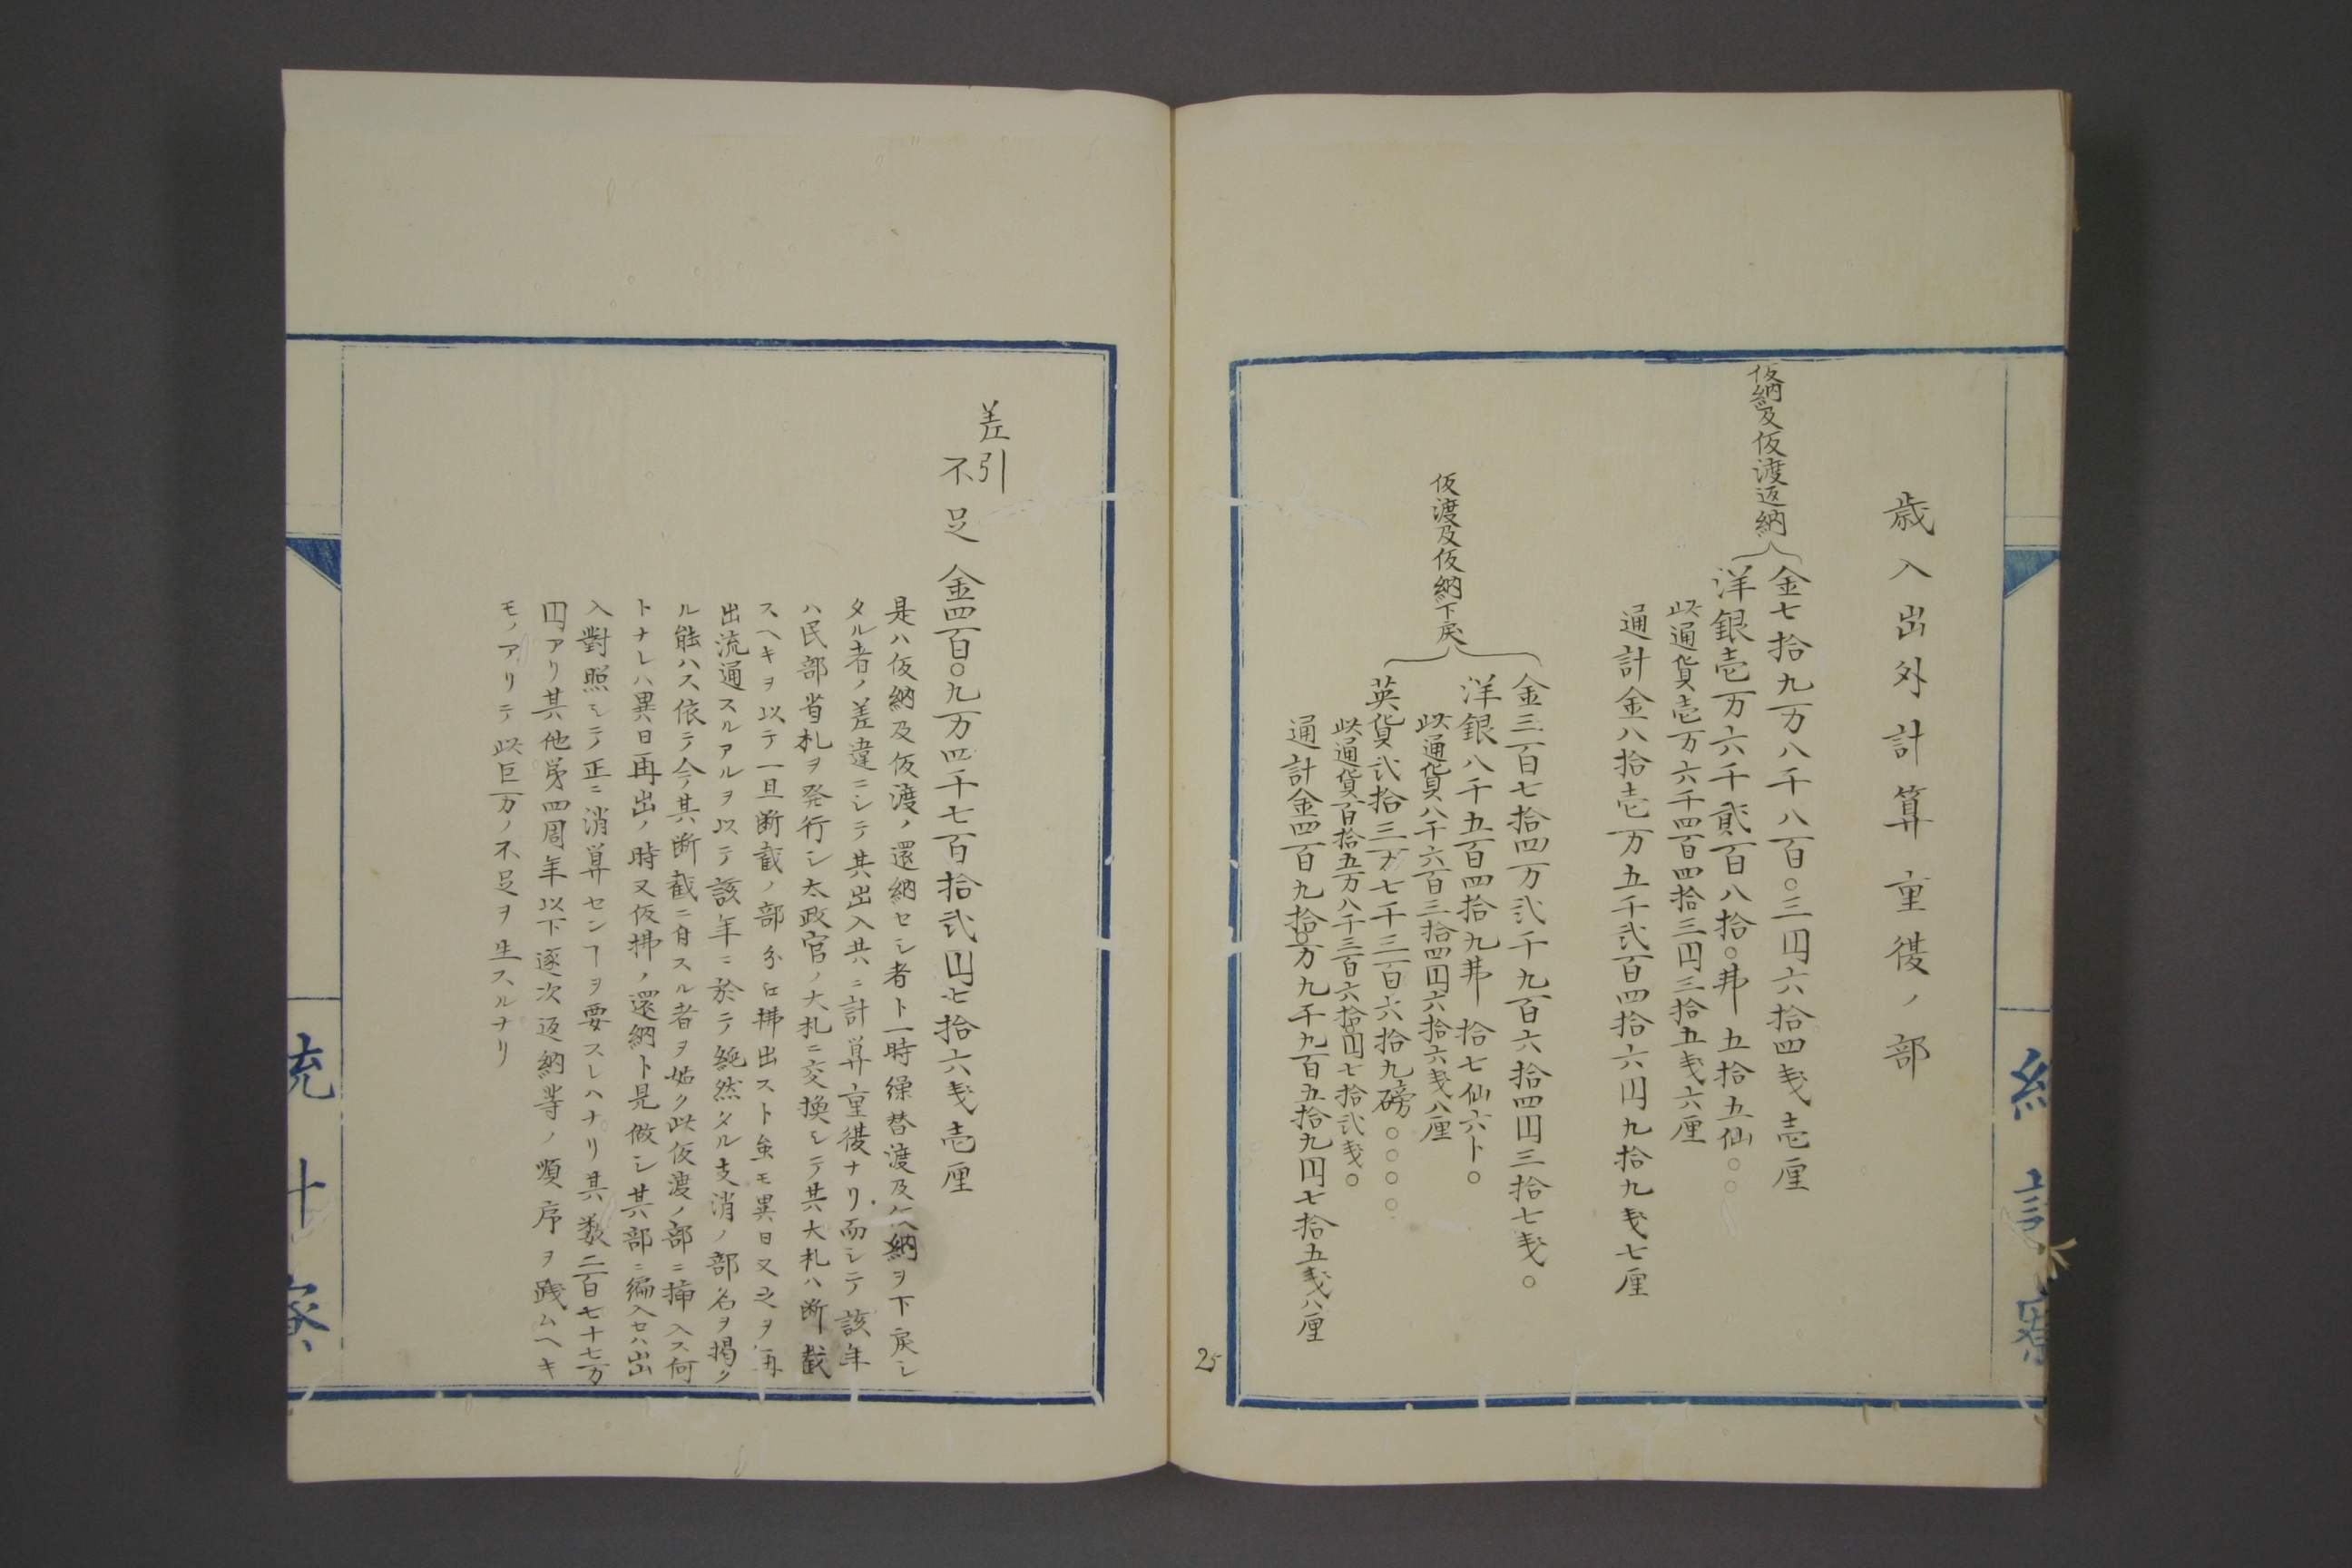 歳入出外計算重複ノ部
仮納及仮渡返納
金七拾九万八千八百〇三円六拾四戔壱厘
洋銀壱万六千貳百八拾〇弗五拾五仙〇〇
此通貨壱万六千四百四拾三円三拾五戔六厘
通計金八拾壱万五千弐百四拾六円九拾九戔七厘
仮渡及仮納下戻
金三百七拾四万弐千九百六拾四円三拾七戔〇
洋銀八千五百四拾九弗拾七仙六卜〇
此通貨八千六百三拾四円六拾六戔八厘
英貨弐拾三万七千三百六拾九磅〇〇〇〇
此通貨百拾五万八千三百六拾〇円七拾弐戔〇
通計金四百九拾〇万九千九百五拾九円七拾五戔八厘
25
差引
不足 金四百〇九万四千七百拾弐円七拾六戔壱厘
是ハ仮納及仮渡ノ還納セシ者ト一時繰替渡及仮納ヲ下戻シ
タル者ノ差違ニシテ其出入共ニ計算重複ナリ而シテ該年
ハ民部省札ヲ発行シ太政官ノ大札ニ交換シテ其大札ハ断截
スヘキヲ以テ一旦断截ノ部分ニ拂出スト虽モ異日又之ヲ再
出流通スルアルヲ以テ該年ニ於テ純然タル支消ノ部名ヲ掲ク
ル能ハス依テ今其断截ニ付スル者ヲ姑ク此仮渡ノ部ニ挿入ス何
トナレハ異日再出ノ時又仮拂ノ還納ト見做シ其部ニ編入セハ出
入對照シテ正ニ消算センヿヲ要スレハナリ其数二百七十七万
円アリ其他第四周年以下逐次返納等ノ順序ヲ践ムヘキ
モノアリテ此巨万ノ不足ヲ生スルナリ
統計寮